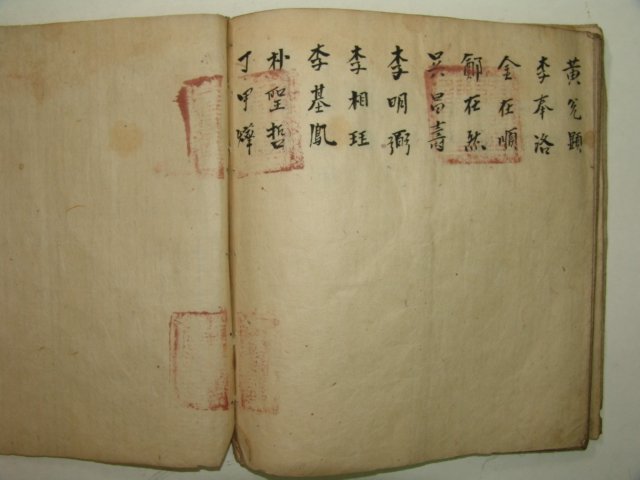 黃冕顯
李奉洛
金在順
鄭在然
吳昌壽
李明弼
李相珏
李基鳳
朴聖哲
丁甲燁